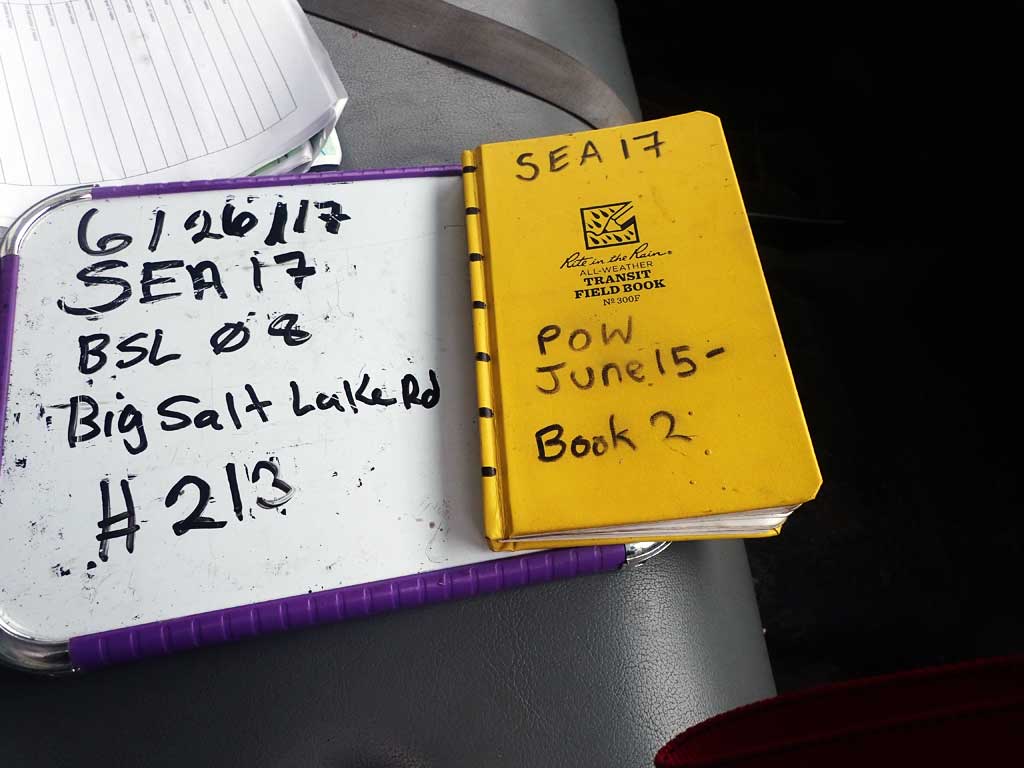 6/26/17
SEA 17
BSL Ø8
Big Salt Lake Rd
#213
SEA 17
Rite in the Rain®
ALL-WEATHER
TRANSIT
FIELD BOOK
Nº 300F
POW
June 15-
Book 2